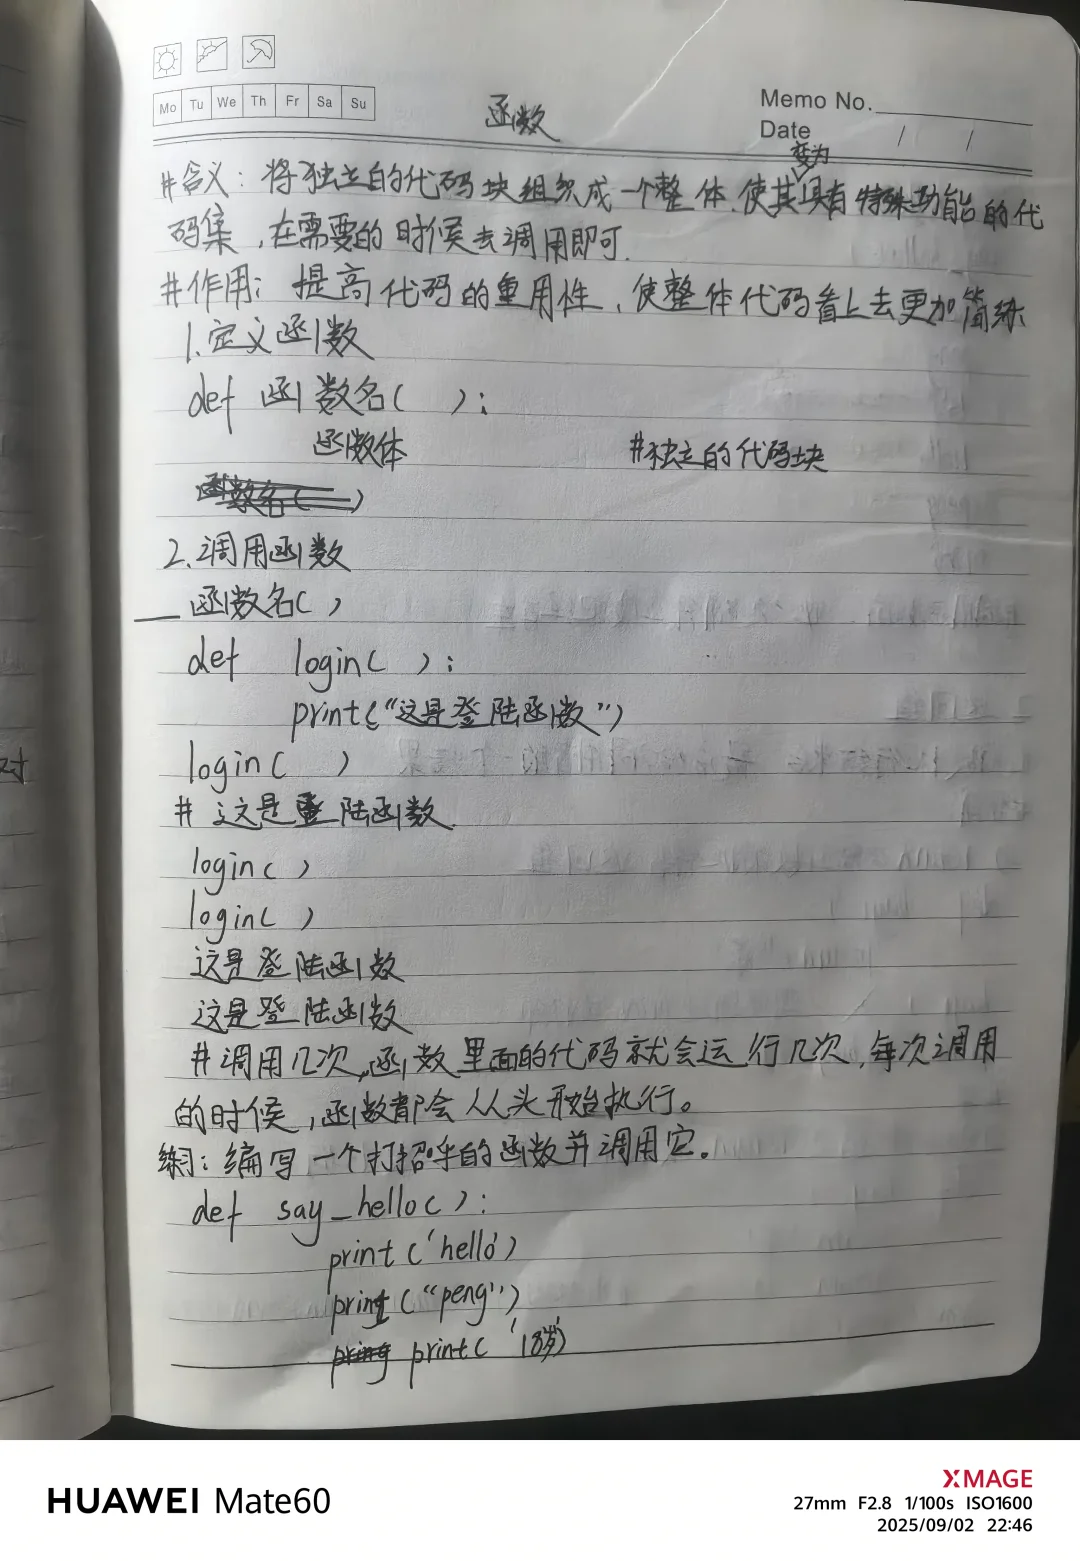 Mo Tu We Th Fr Sa Su
函数
Memo No.
Date / /
变为
#含义：将独立的代码块组织成一个整体,使其具有特殊功能的代
码集,在需要的时候去调用即可.
#作用：提高代码的重用性,使整体代码看上去更加简练
1.定义函数
def 函数名( ):
函数体 #独立的代码块
函数名( )
2.调用函数
函数名( )
def login( ):
print("这是登陆函数")
login( )
对
# 这是登陆函数
login( )
login( )
这是登陆函数
这是登陆函数
#调用几次,函数里面的代码就会运行几次,每次调用
的时候,函数都会从头开始执行。
练习：编写一个打招呼的函数并调用它。
def say_hello( ):
print('hello')
print("peng")
print print('18岁')
HUAWEI Mate60
XMAGE
27mm F2.8 1/100s ISO1600
2025/09/02 22:46